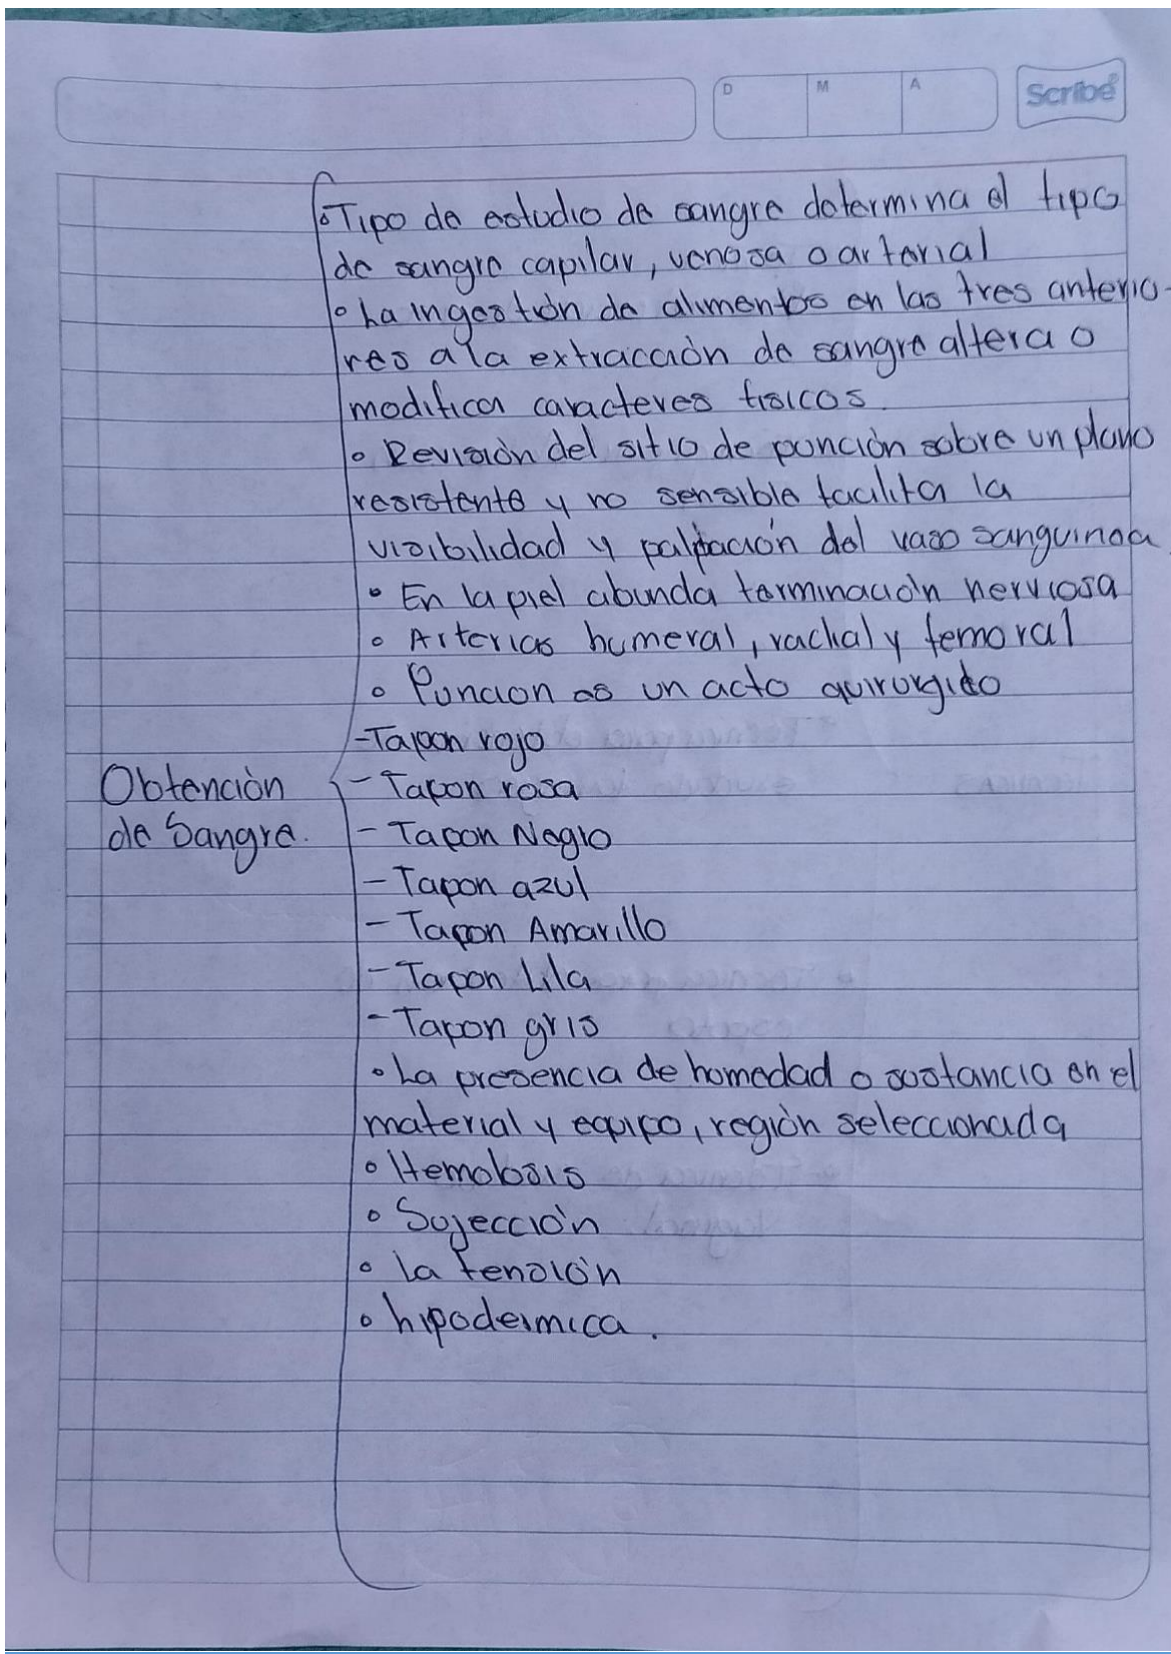 D M A Scribe
• Tipo de estudio de sangre determina el tipo
de sangre capilar, venosa o arterial
• La ingestión de alimentos en las tres anterio-
res a la extracción de sangre altera o
modifica caracteres fisicos.
• Revisión del sitio de punción sobre un plano
resistente y no sensible facilita la
visibilidad y palpación del vaso sanguinea.
• En la piel abunda terminación nerviosa
• Arterias humeral, rachal y femoral
• Puncion es un acto quirurgido
-Tapon rojo
Obtención
de Sangre.
- Tapon rosa
- Tapon Negro
- Tapon azul
- Tapon Amarillo
- Tapon Lila
- Tapon gris
• La presencia de homedad o sustancia en el
material y equipo, región seleccionada
• Hemolosis
• Sujección
• La tensión
• hipodermica.